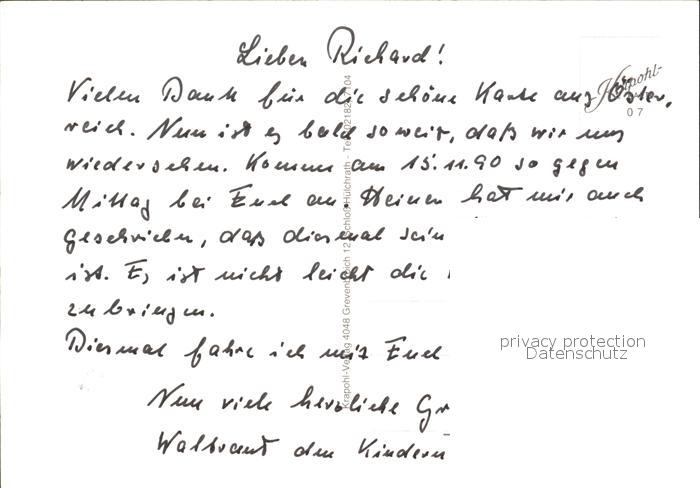 Lieber Richard!
Vielen Dank für die schöne Karte aus Öster,
reich. Nun ist es bald soweit, daß wir uns
wiedersehen. Komme am 15.11.90 so gegen
Mittag bei Euch an. Heiner hat mir auch
geschrieben, daß diesmal sein
ist. Es ist nicht leicht die
zu bringen.
Diesmal fahre ich mit Euch
Nun viele herzliche Gr
den Kindern
Krapohl-Verlag 4048 Grevenbroich 12 Schloß Hülchrath - Tel. 02182/
Krapohl-
07
privacy protection
Datenschutz